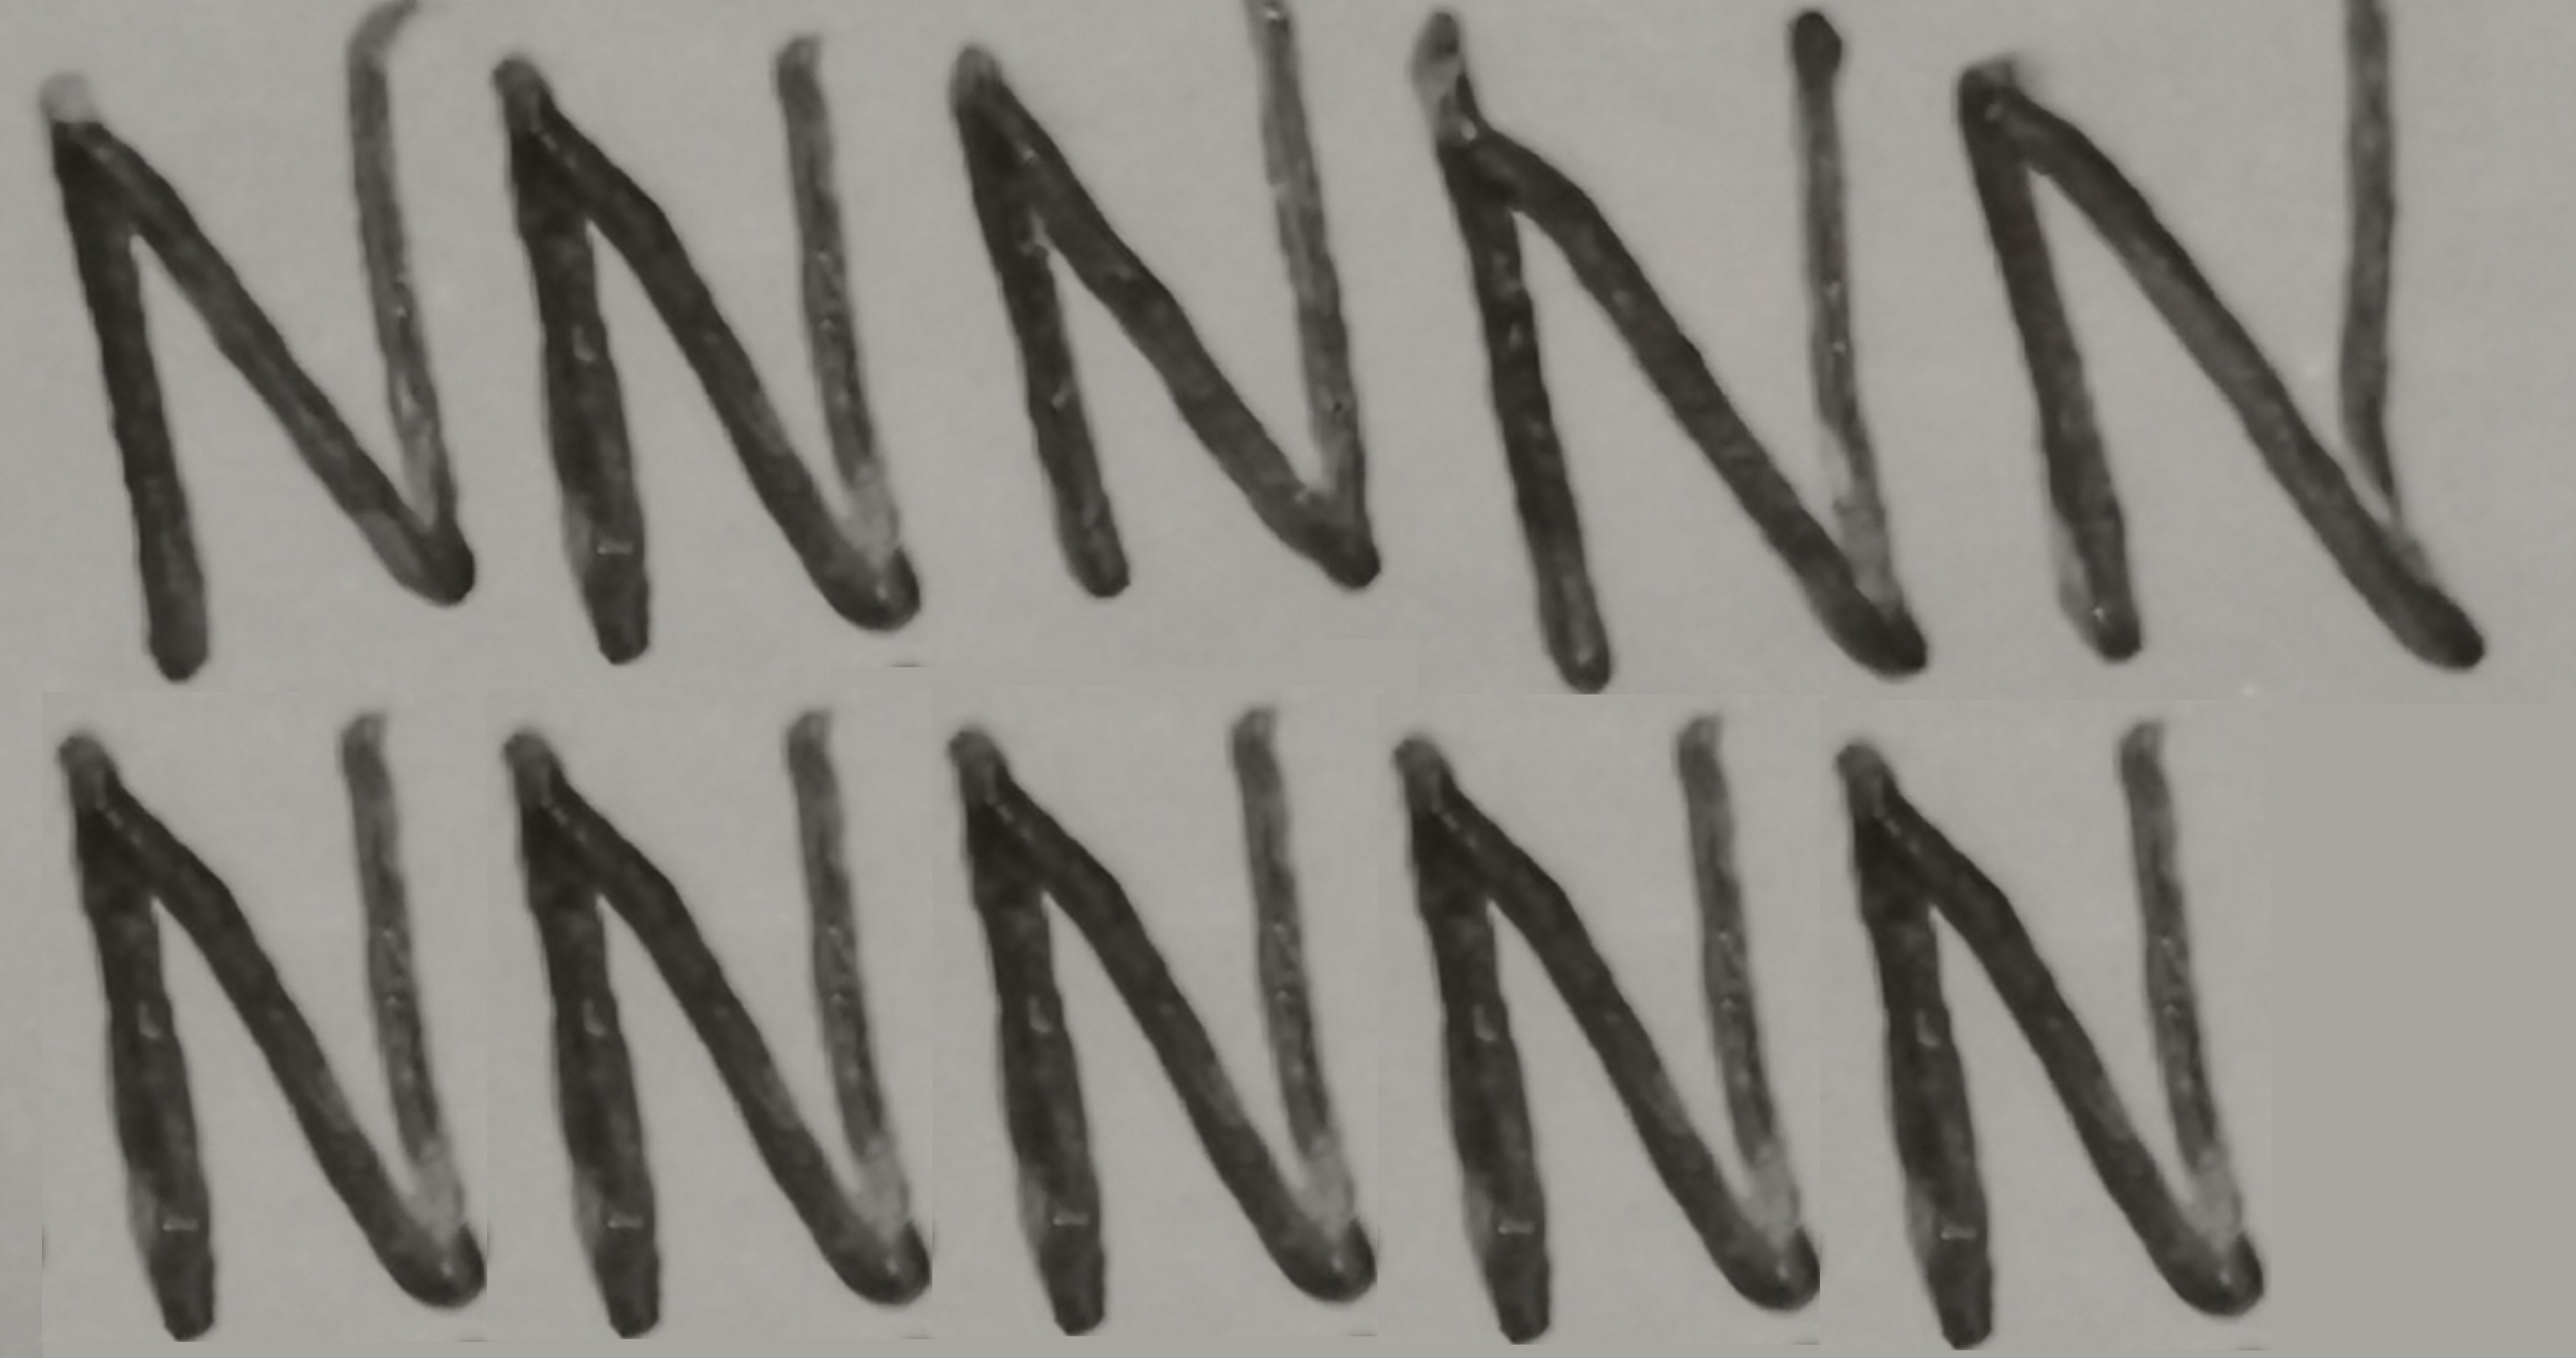 NNNNN
NNNNN